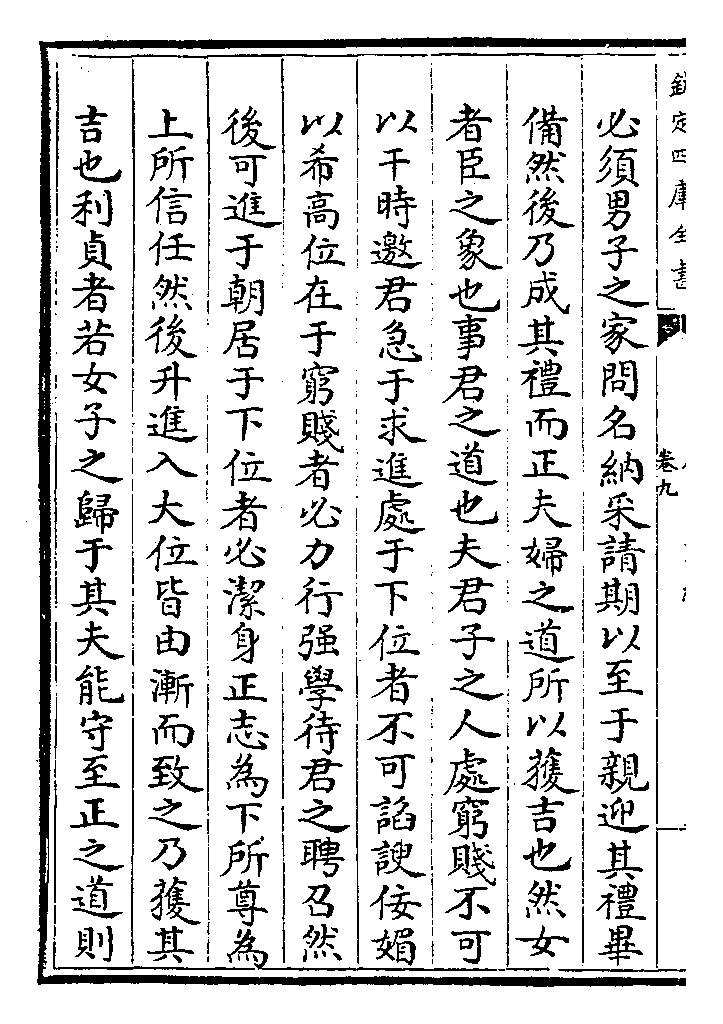 欽定四庫全書
卷九
必須男子之家問名納采請期以至于親迎其禮畢
備然後乃成其禮而正夫婦之道所以獲吉也然女
者臣之象也事君之道也夫君子之人處窮賤不可
以干時邀君急于求進處于下位者不可諂諛佞媚
以希高位在于窮賤者必力行强學待君之聘召然
後可進于朝居于下位者必潔身正志為下所尊為
上所信任然後升進入大位皆由漸而致之乃獲其
吉也利貞者若女子之歸于其夫能守至正之道則